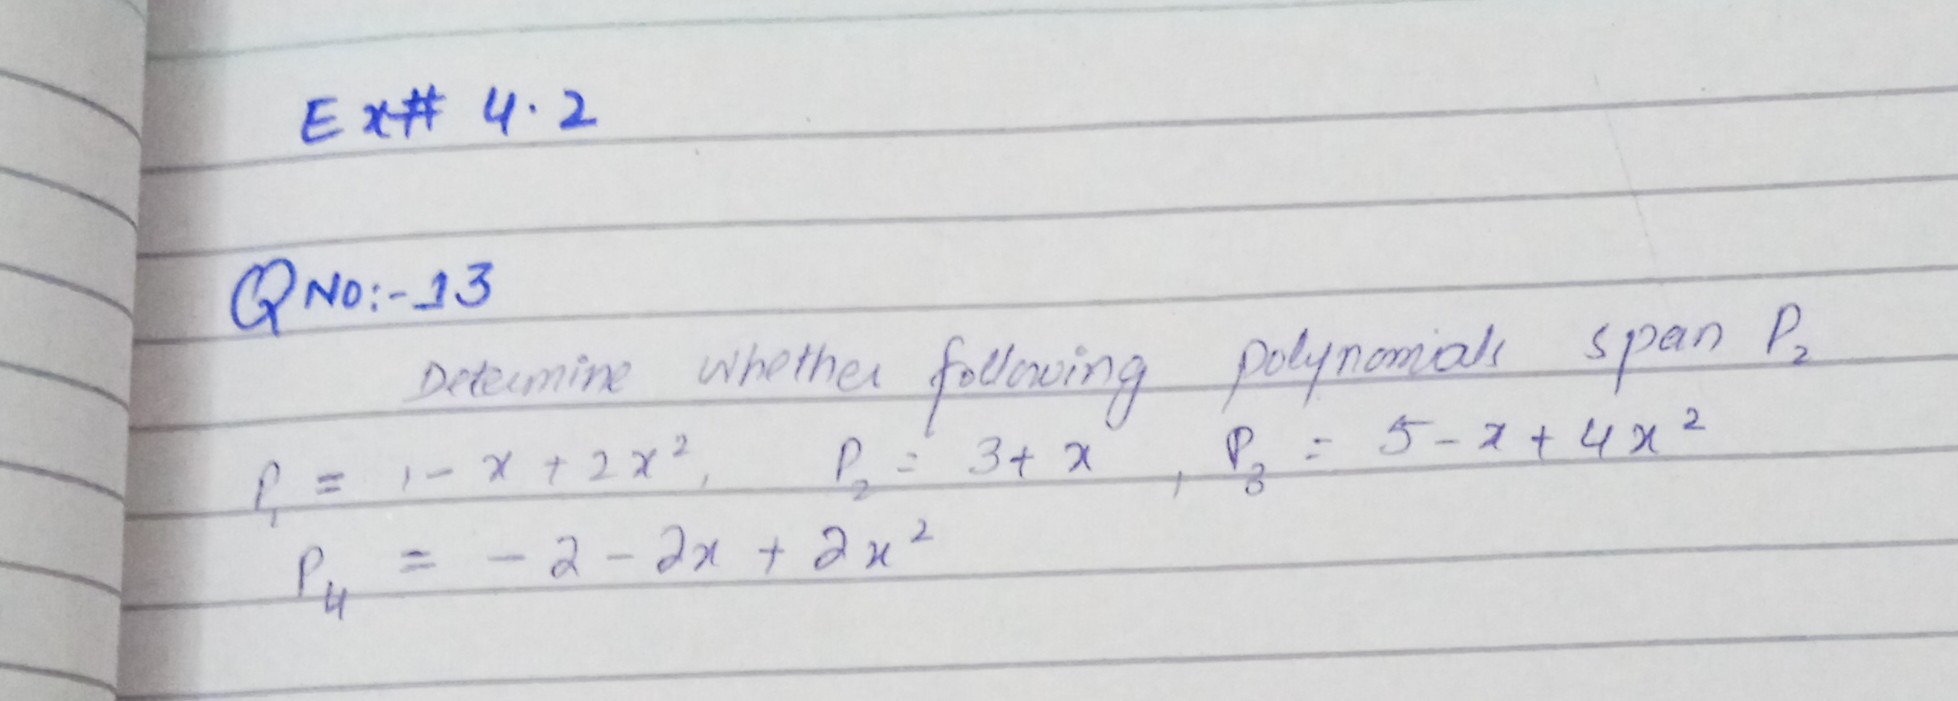 Ex# 4.2
QNO:-13
Determine whether following polynomials span P₂
P₁ = 1-x+2x², P₂ = 3+x, P₃ = 5-x+4x²
P₄ = -2-2x+2x²